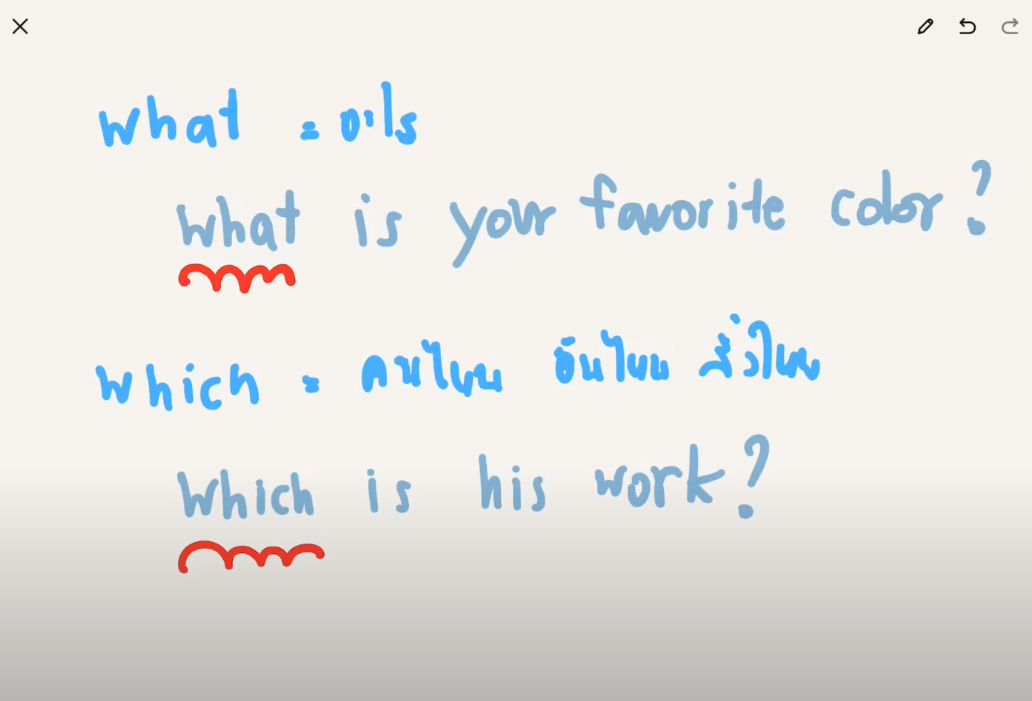 what = อะไร
what is your favorite color?
which = คนไหน อันไหน สิ่งไหน
which is his work?